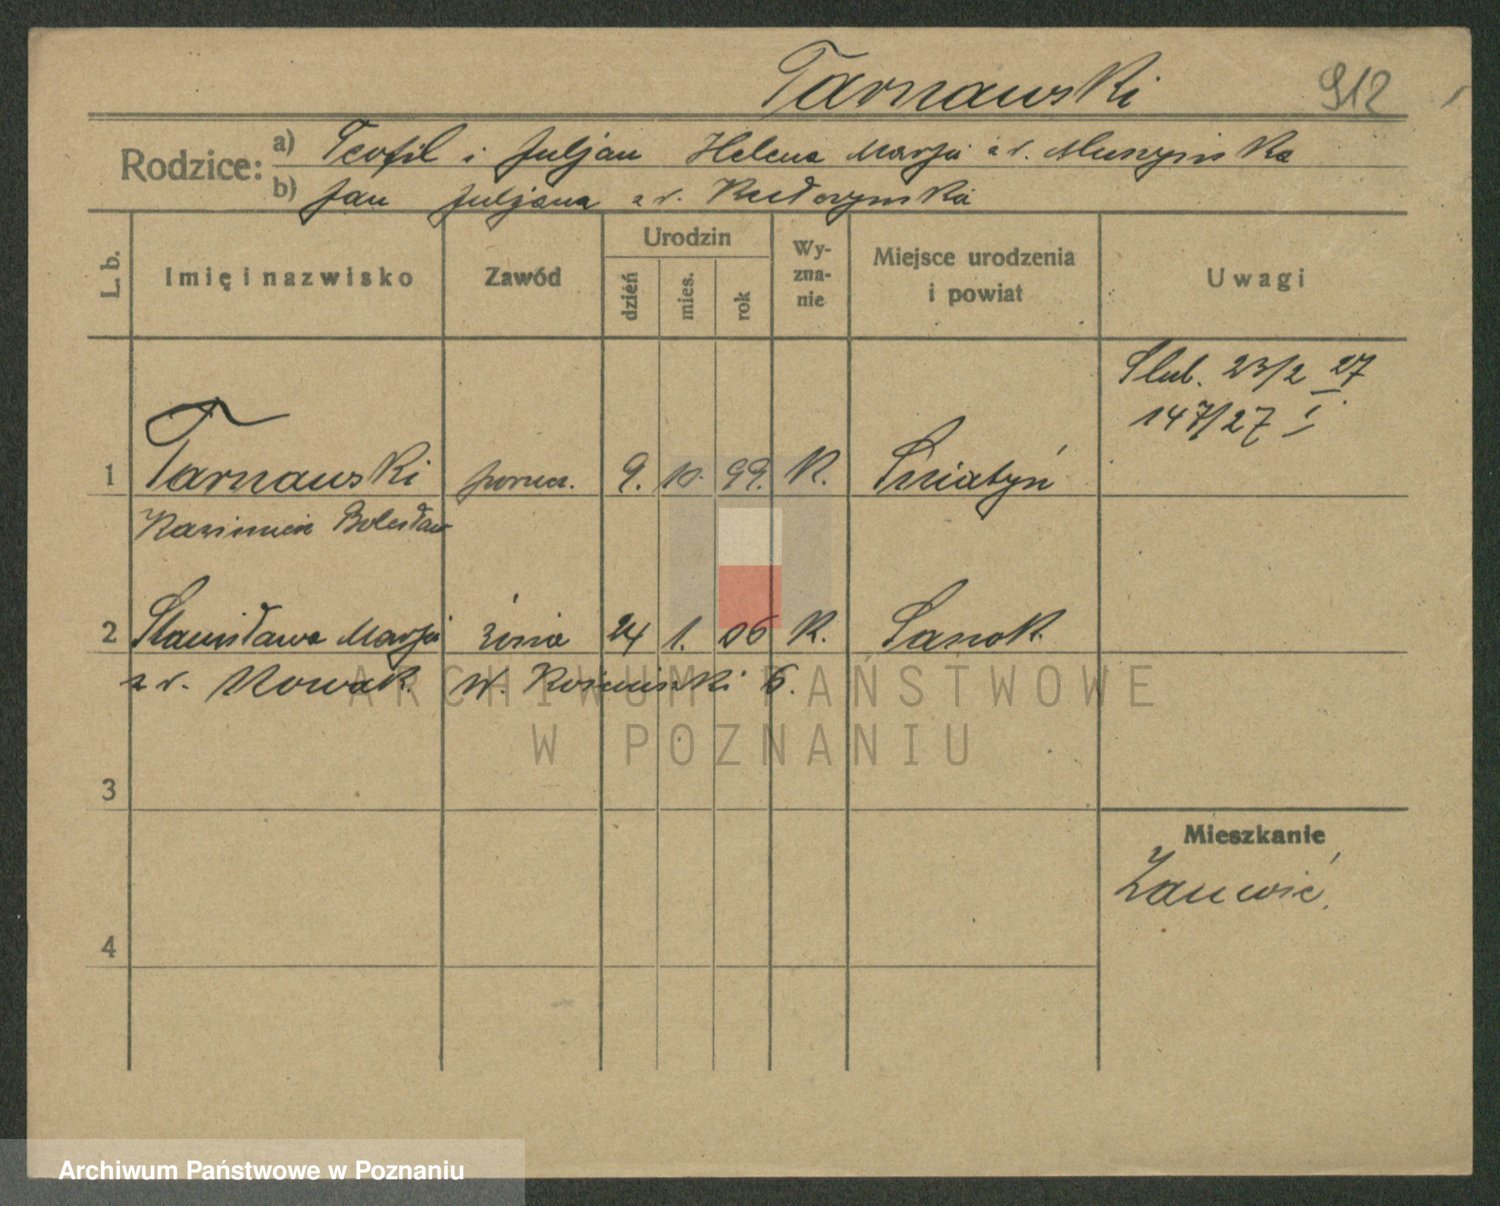 Tarnawski 912
Rodzice: a) Teofil i Juljan Helena Marja z d. Muszyńska
b) Jan Juljana z d.
L. b. Imię i nazwisko Zawód Urodzin dzień mies. rok Wy-zna-nie Miejsce urodzenia i powiat Uwagi
Ślub. 23/2 27
147/27 I
1 Tarnawski porucz. 9. 10. 99. K. Śniatyń
Kazimierz Bolesław
2 Stanisława Marja żona 24 1. 06 K. Sanok
z d. Nowak W. 6.
3
Mieszkanie
4
ARCHIWUM PAŃSTWOWE
W POZNANIU
Archiwum Państwowe w Poznaniu